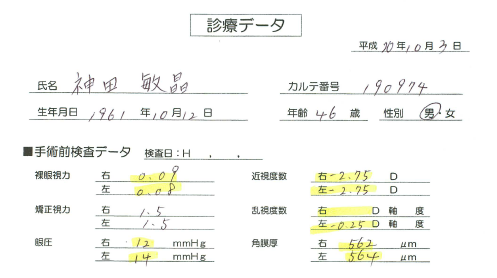 診療データ
平成 20年 10月 3日
氏名 神田 敏晶 カルテ番号 190974
生年月日 1961 年 10月 12日 年齢 46 歳 性別 男・女
■手術前検査データ 検査日：H . .
裸眼視力 右 0.09 近視度数 右 -2.75 D
左 0.08 左 -2.75 D
矯正視力 右 1.5 乱視度数 右 D 軸 度
左 1.5 左 -0.25 D 軸 度
眼圧 右 12 mmHg 角膜厚 右 562 μm
左 14 mmHg 左 564 μm